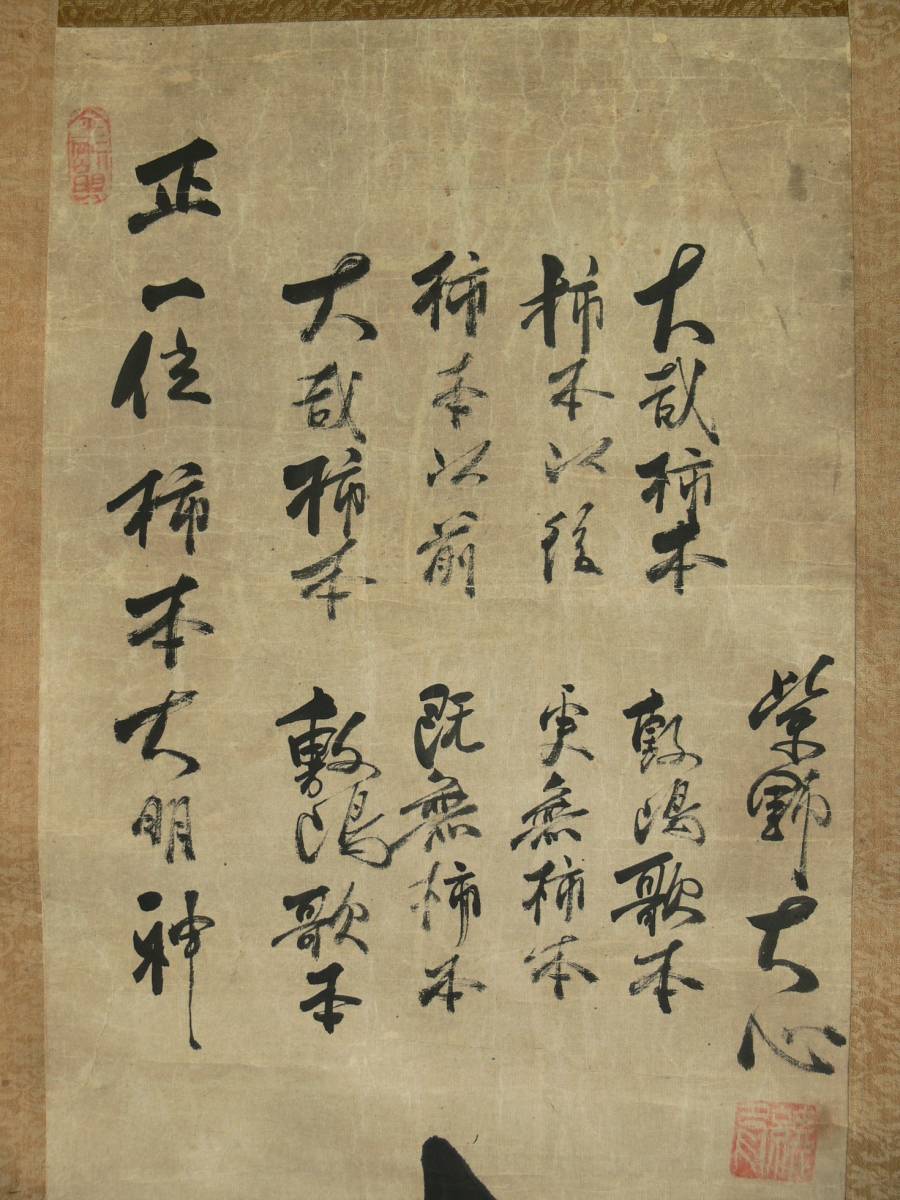 正一位柿本大明神
大哉柿本 敷嶋歌本
柿本以前 既無柿本
柿本以後 更無柿本
大哉柿本 敷嶋歌本
紫野大心